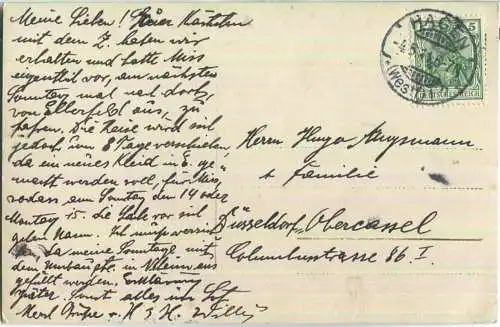 Meine Lieben! Euer Kästchen
mit dem Z. haben wir
erhalten und hatte Miss
eigentlich vor, am nächsten
Sonntag mal nach dort,
von Elberfeld aus, zu
fahren. Die Reise wird sich
jedoch um 8 Tage verschieben
da ein neues Kleid in E. ge-
macht werden soll, für Miss,
sodass am Sonntag den 14 oder
Montag 15. die Sache vor sich
gehen kann. Ich muss
da meine Sonntage mit
dem Umbau
gefüllt werden. Erklärung
später. Sonst alles
Herzl. Grüsse v. H & H. Willy
HAGEN
(Westf.)
5
DEUTSCHES REICH
Herrn Hugo Augsmann
& Familie
Düsseldorf-Obercassel
Columbusstrasse 86 I